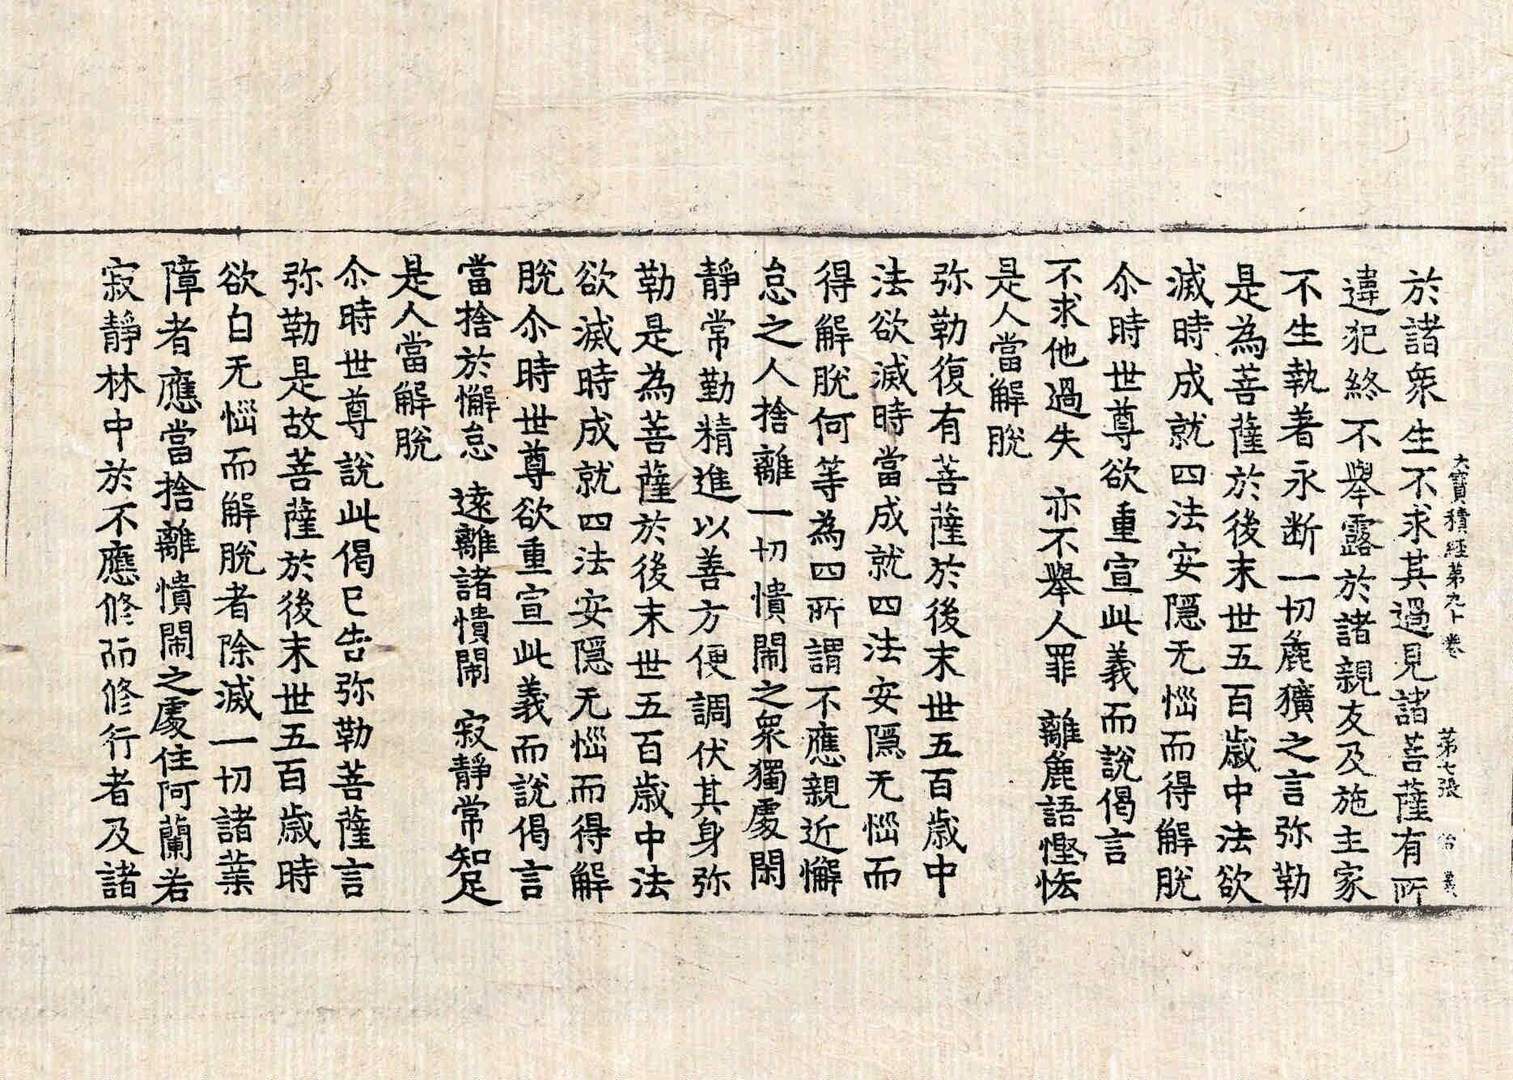 大寶積經第九十卷 第七張
於諸衆生不求其過見諸菩薩有所
違犯終不舉露於諸親友及施主家
不生執著永断一切麁獷之言弥勒
是為菩薩於後末世五百歲中法欲
滅時成就四法安隱无惱而得解脫
尒時世尊欲重宣此義而說偈言
不求他過失 亦不舉人罪 離麁語慳悋
是人當解脫
弥勒復有菩薩於後末世五百歲中
法欲滅時當成就四法安隱无惱而
得解脫何等為四所謂不應親近懈
怠之人捨離一切憒閙之衆獨處閑
靜常勤精進以善方便調伏其身弥
勒是為菩薩於後末世五百歲中法
欲滅時成就四法安隱无惱而得解
脫尒時世尊欲重宣此義而說偈言
當捨於懈怠 遠離諸憒閙 寂靜常知足
是人當解脫
尒時世尊說此偈已告弥勒菩薩言
弥勒是故菩薩於後末世五百歲時
欲自无惱而解脫者除滅一切諸業
障者應當捨離憒閙之處住阿蘭若
寂靜林中於不應修而修行者及諸